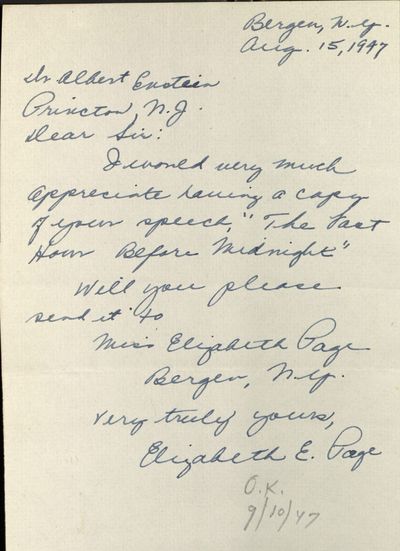 Bergen, N.Y.
Aug. 15, 1947
Dr Albert Enstein
Princton, N.J.
Dear Sir:
I would very much
appreciate having a copy
of your speech, "The Last
Hour Before Midnight"
Will you please
send it to
Miss Elizabeth Page
Bergen, N.Y.
Very truly yours,
Elizabeth E. Page
O.K.
9/10/47